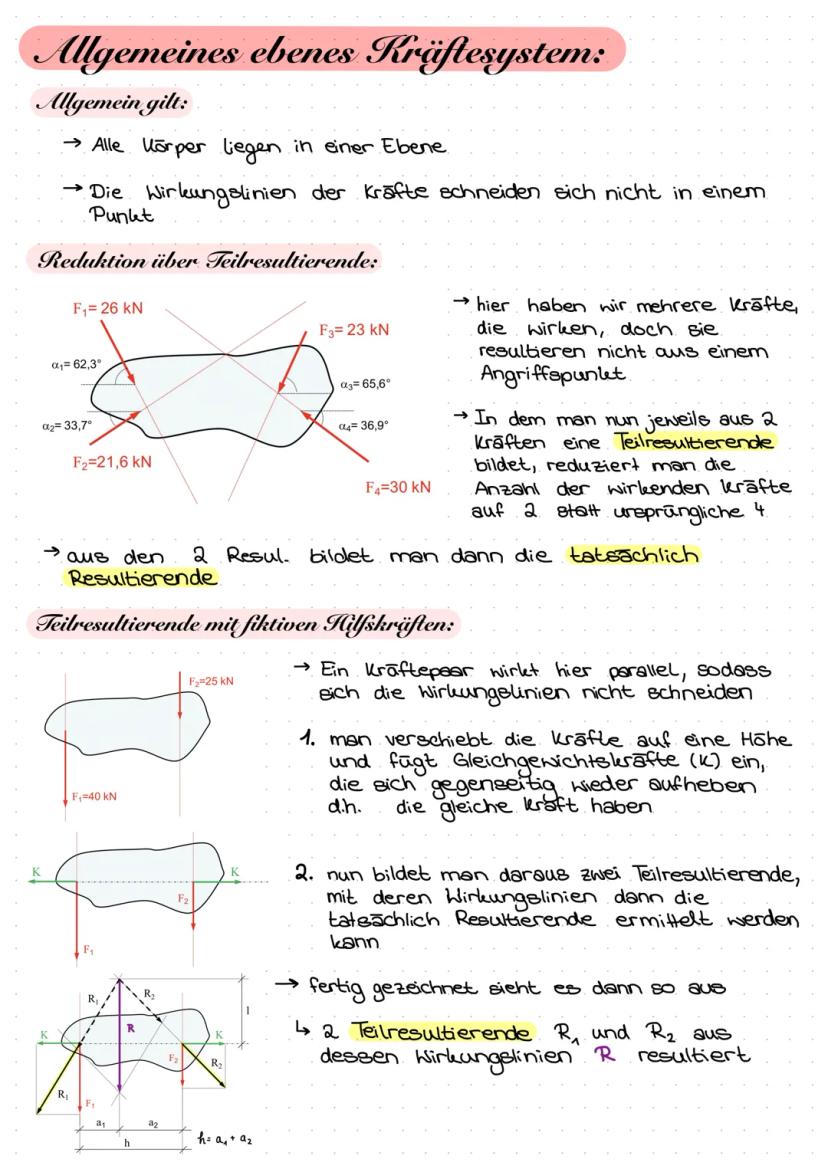 Allgemeines ebenes Kräftesystem:
Allgemein gilt:
→ Alle Körper liegen in einer Ebene
→ Die Wirkungslinien der Kräfte schneiden sich nicht in einem
Punkt
Reduktion über Teilresultierende:
F₁= 26 kN
F₃= 23 kN
α₁= 62,3°
α₃= 65,6°
α₂= 33,7°
α₄= 36,9°
F₂=21,6 kN
F₄=30 kN
→ hier haben wir mehrere Kräfte,
die wirken, doch sie
resultieren nicht aus einem
Angriffspunkt
→ In dem man nun jeweils aus 2
Kräften eine Teilresultierende
bildet, reduziert man die
Anzahl der wirkenden Kräfte
auf 2 statt ursprüngliche 4
→ aus den 2 Resul. bildet man dann die tatsächlich
Resultierende
Teilresultierende mit fiktiven Hilfskräften:
F₂=25 kN
F₁=40 kN
→ Ein Kräftepaar wirkt hier parallel, sodass
sich die Wirkungslinien nicht schneiden
1. man verschiebt die Kräfte auf eine Höhe
und fügt Gleichgewichtskräfte (K) ein,
die sich gegenseitig wieder aufheben
d.h. die gleiche Kraft haben
K
K
F₂
F₁
2. nun bildet man daraus zwei Teilresultierende,
mit deren Wirkungslinien dann die
tatsächlich Resultierende ermittelt werden
kann
→ fertig gezeichnet sieht es dann so aus
↳ 2 Teilresultierende R₁ und R₂ aus
dessen Wirkungslinien R resultiert
R₁
R₂
l
R
K
K
F₂
R₂
R₁
F₁
a₁
a₂
h
h= a₁ + a₂